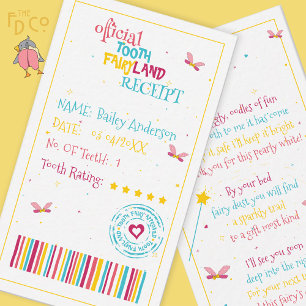 THE
FD Co.
official
TOOTH
FAIRYLAND
RECEIPT
NAME: Bailey Anderson
DATE: 03/04/20XX
No. OF Teeth: 1
Tooth Rating:
TOOTH FAIRY APPROVED
TOOTH FAIRYLAND
oodles of fun
tooth to me it has come
it safe I'll keep it bright
you for this pearly white!
By your bed
fairy dust, you will find
a sparkly trail
to a gift most kind
I'll see you soon
deep into the night
for your next
this fairy's